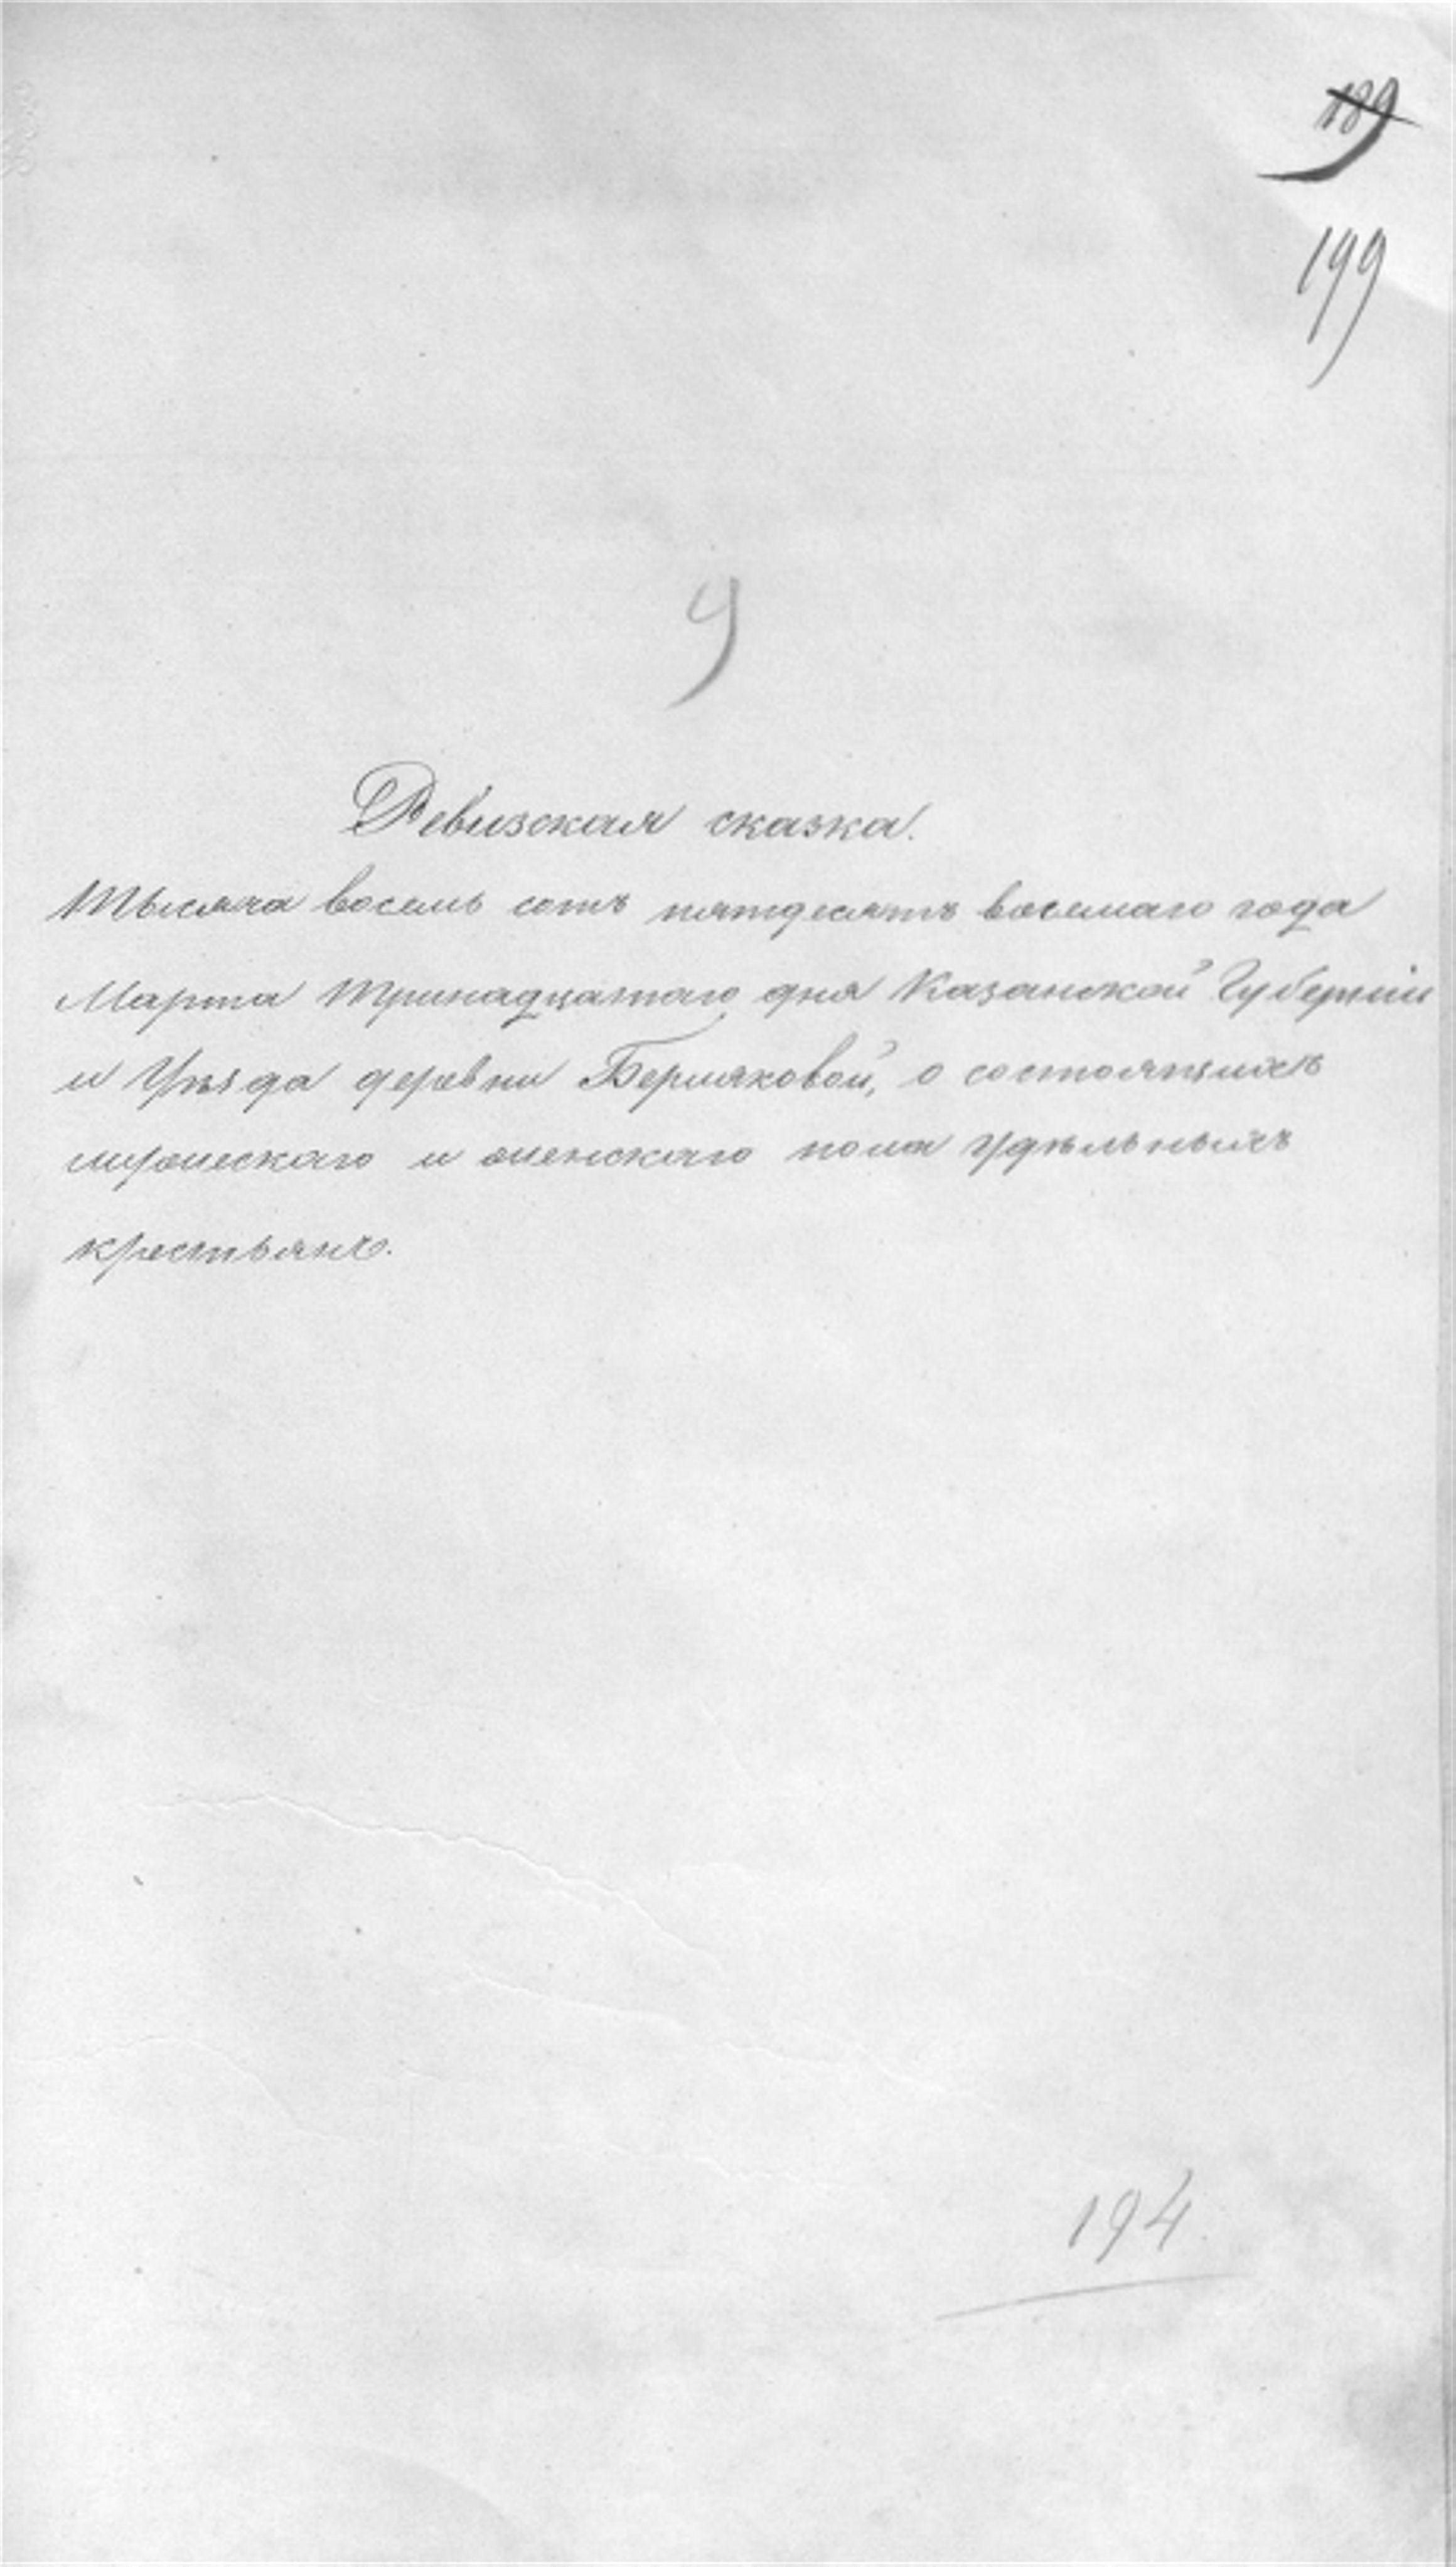 189
199
9
Ревизская сказка.
Тысяча восемь сотъ пятдесятъ восьмаго года
Марта тринадцатаго дня Казанской Губерніи
и Уѣзда деревни Бермяковой, о состоящихъ
мужескаго и женскаго пола Удѣльныхъ
крестьянъ.
194